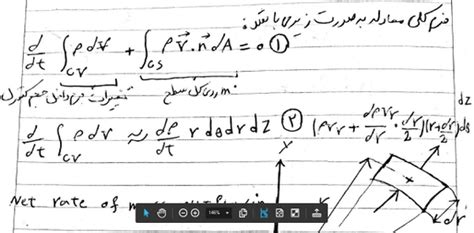 فرم کلی معادله به صورت زیر می باشد:
d/dt ∫_CV ρ d∀ + ∫_CS ρ V⃗ . n⃗ dA = 0 ①
تغییرات جرم داخل حجم کنترل m روی کل سطح
d/dt ∫_CV ρ d∀ ≈ dρ/dt r dθ dr dz ② (ρVr + dρVr/dr . dr/2)(r + dr/2) dθ dz
Net rate of
146%